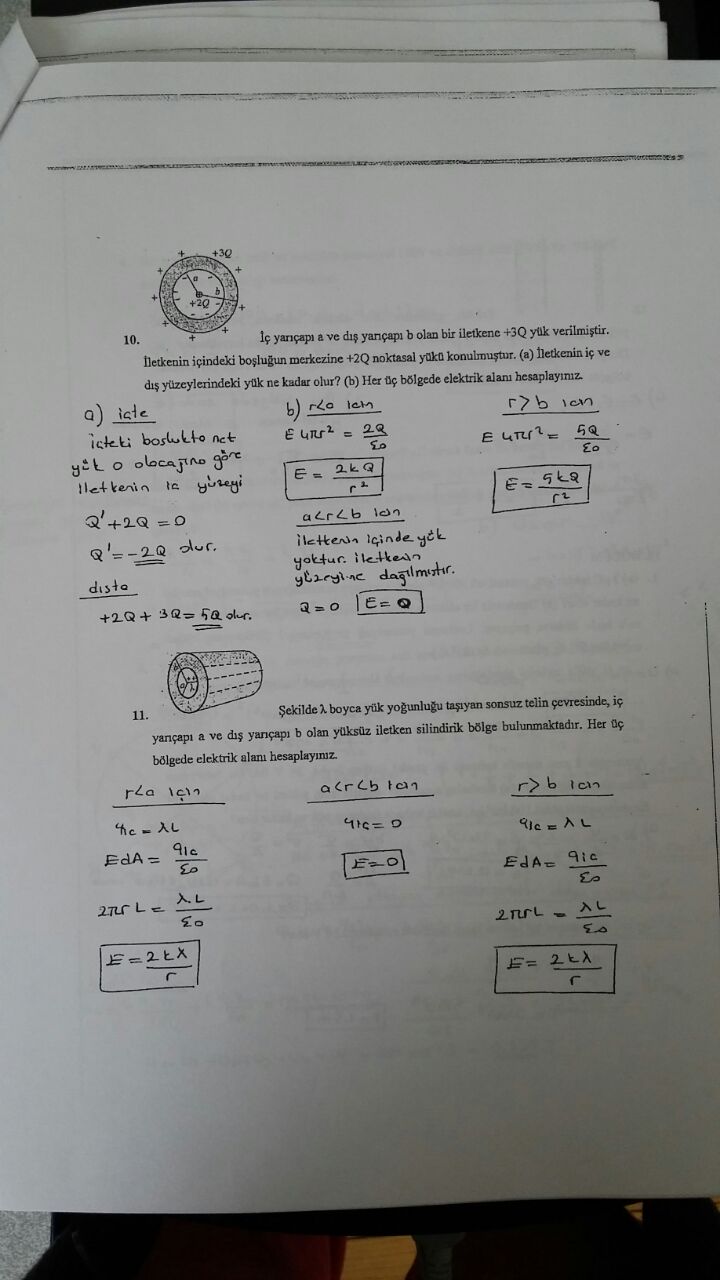 +3Q
a
b
+2Q
10. İç yarıçapı a ve dış yarıçapı b olan bir iletkene +3Q yük verilmiştir.
İletkenin içindeki boşluğun merkezine +2Q noktasal yükü konulmuştur. (a) İletkenin iç ve
dış yüzeylerindeki yük ne kadar olur? (b) Her üç bölgede elektrik alanı hesaplayınız.
a) içte
içteki boşlukta net
yük 0 olacağına göre
iletkenin iç yüzeyi
Q' + 2Q = 0
Q' = -2Q olur.
dışta
+2Q + 3Q = 5Q olur.
b) r<a için
E 4πr² = 2Q/ε0
E = 2kQ/r²
a<r<b için
iletkenin içinde yük
yoktur. iletkenin
yüzeyine dağılmıştır.
Q = 0 E = 0
r>b için
E 4πr² = 5Q/ε0
E = 5kQ/r²
11. Şekilde λ boyca yük yoğunluğu taşıyan sonsuz telin çevresinde, iç
yarıçapı a ve dış yarıçapı b olan yüksüz iletken silindirik bölge bulunmaktadır. Her üç
bölgede elektrik alanı hesaplayınız.
r<a için
qiç = λL
EdA = qiç/ε0
2πrL = λ.L/ε0
E = 2kλ/r
a<r<b için
qiç = 0
E=0
r>b için
qiç = λL
EdA = qiç/ε0
2πrL = λL/ε0
E = 2kλ/r